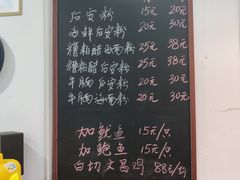 后安粉 15元 20元
海鲜后安粉 20元 30元
糟粕醋海南粉 25元 38元
糟粕醋后安粉 25元 38元
牛腩后安粉 20元 30元
牛腩海南粉 20元 30元
加鱿鱼 15元/只
加鲍鱼 15元/只
白切文昌鸡 88元/份